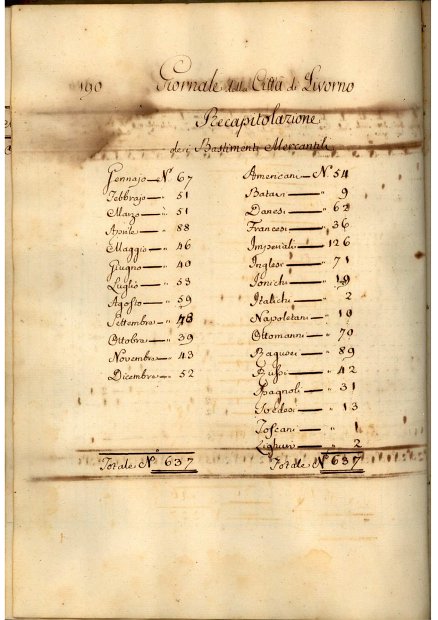 190 Giornale della Città di Livorno
Recapitolazione
de i Bastimenti Mercantili
Gennajo N.° 67
Febbrajo — „ 51
Marzo — „ 51
Aprile — „ 88
Maggio — „ 46
Giugno — „ 40
Luglio — „ 53
Agosto — „ 59
Settembre — „ 48
Ottobre — „ 39
Novembre — „ 43
Dicembre — „ 52
Totale N.° 637
Americani — N.° 54
Batavi — „ 9
Danesi — „ 62
Francesi — „ 36
Imperiali — „ 126
Inglesi — „ 71
Ionichi — „ 19
Italichi — „ 2
Napoletani — „ 10
Ottomanni — „ 70
Ragusei — „ 89
Russi — „ 42
Spagnoli — „ 31
Svedesi — „ 13
Toscani — „ 1
Liguri — „ 2
Totale N.° 637